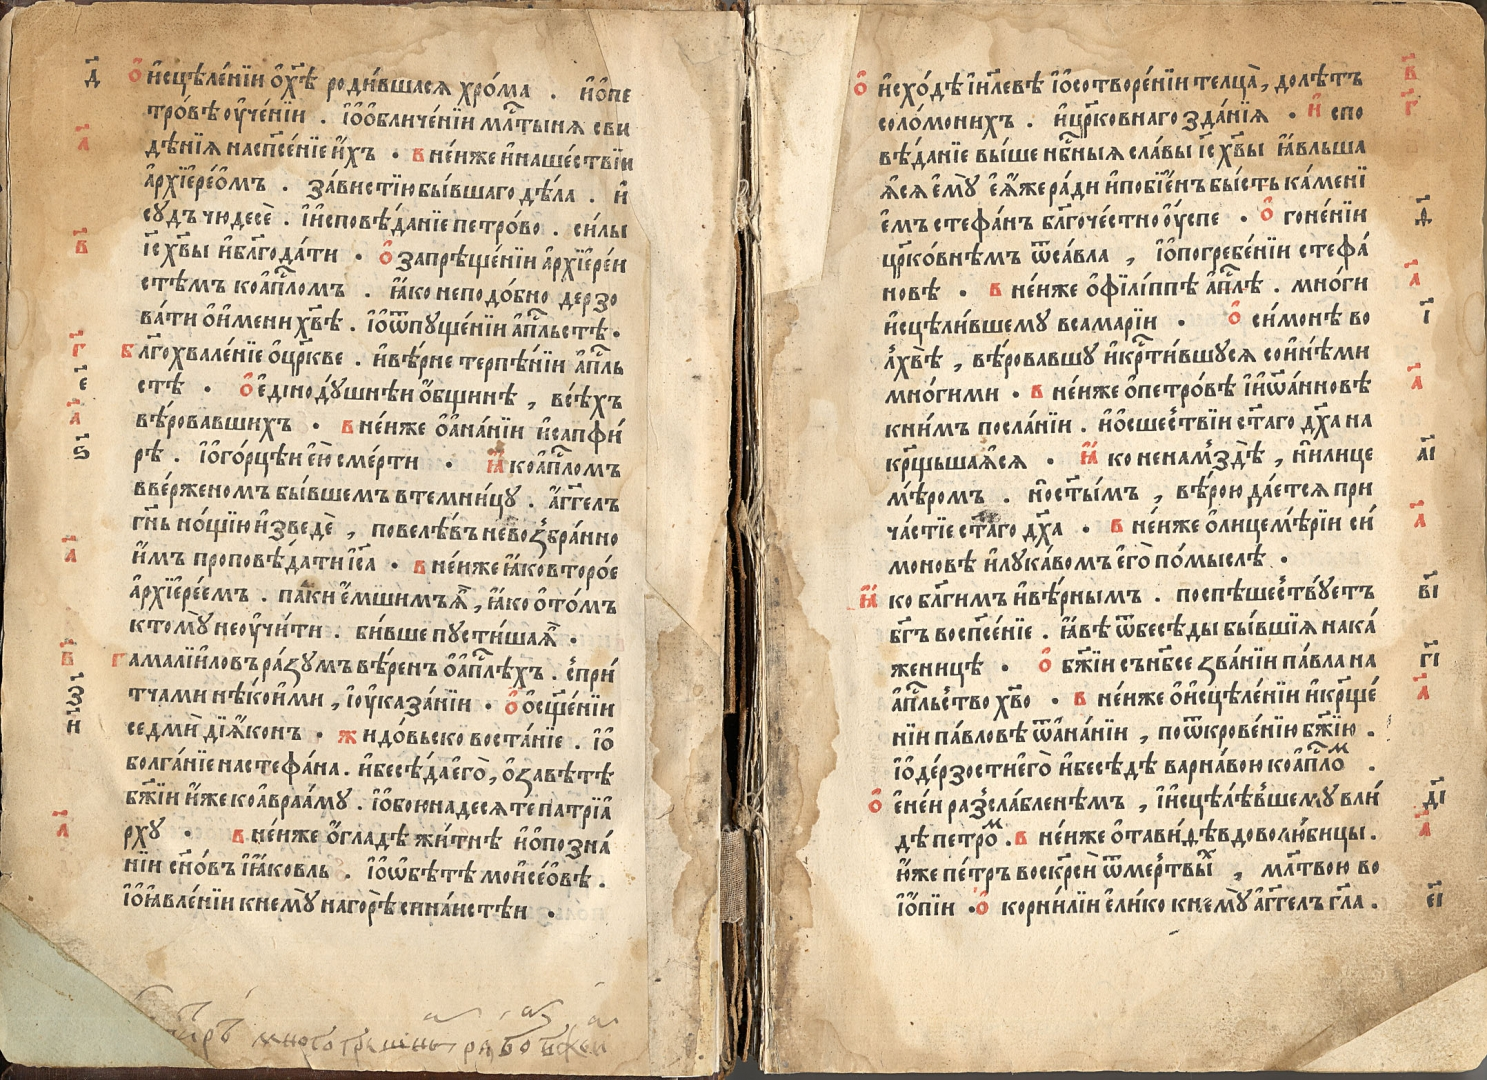 д҃ О҆ и҆сцѣле́нїи ѻ҆ хр҃ѣ роди́вшасѧ хро́ма . и҆ ѻ҆ пе
тро́вѣ ѹ҆че́нїи . і҆ ѻ҆ ѻ҆бличе́нїи мл҃тынѧ сви
а҃ дѣ́нїѧ на сп҃се́нїе и҆́хъ . в не́йже и҆ наше́ствїи
а҆рхїере́ѡмъ . за́вистїю бы́вшаго дѣ́ла . и҆
сꙋ́дъ чюдесѐ . і҆ и҆сповѣ́данїе петро́во . си́лы
в҃ і҆с хв҃ы и҆ бл҃года́ти . О҆ запрѣще́нїи а҆рхїере́и
стѣмъ ко а҆п҃ломъ . ꙗ҆́ко неподо́бно дерзо
ва́ти ѻ҆ и҆мени хв҃ѣ . і҆ ѻ҆ ѿпꙋще́нїи а҆п҃льстѣ .
г҃ Бл҃гохвале́нїе ѻ҆ цр҃кве . и҆ вѣ́рне терпѣ́нїи а҆п҃ль
е҃ стѣ . О҆ є҆динодꙋ́шнѣи ѻ҆́бщинѣ , всѣ́хъ
а҃ вѣ́ровавшихъ . в не́йже ѻ҆ а҆на́нїи и҆ сапфи́
ѕ҃ рѣ . і҆ ѻ҆ го́рцѣи є҆ю̀ сме́рти . Ꙗ҆́ко а҆п҃ломъ
вве́рженомъ бы́вшемъ в темни́цꙋ . а҆́гг҃елъ
гн҃ь но́щїю и҆зведѐ , повелѣ́въ невозбра́нно
а҃ и҆̀мъ проповѣ́дати і҆са . в не́йже ꙗ҆́ко второ́е
а҆рхїере́емъ . па́ки є҆́мшимъ ѧ҆̀ , ꙗ҆́ко ѻ҆ то́мъ
ктомꙋ̀ не ѹ҆чи́ти . би́вше пꙋсти́ша ѧ҆̀ .
в҃ Гамалїи́ловъ ра́зꙋмъ вѣ́ренъ ѻ҆ а҆п҃лѣхъ . с при́
тчами нѣ́коими , і҆ ѹ҆каза́нїи . О҆ ѻ҆сщ҃е́нїи
седмѝ дїа́конъ . жидо́вьско воста́нїе . і҆ ѻ҆
болга́нїе на стефа́на . и҆ бесѣ́да є҆го̀ , ѻ҆ завѣ́тѣ
бж҃їи и҆́же ко а҆враа́мꙋ . і҆ ѻ҆ боюна́десѧте па трїа҆
л҃ рхꙋ . в не́йже ѻ҆ гла́дѣ жи́тнѣ и҆ ѻ҆ позна́
нїи сн҃о́въ і҆ꙗ҆́ковль . і҆ ѻ҆ ѡ҆бѣ́тѣ моѵсе́овѣ .
і҆ ѻ҆ ꙗ҆вле́нїи к немꙋ̀ на го́рѣ сина́истѣи .
О҆ и҆схо́дѣ і҆и҃левѣ і҆ ѻ҆ сотворе́нїи телца̀, до лѣ́тъ в҃
соло́монихъ . и҆ цр҃ко́внаго зда́нїѧ . И҆ спо г҃
вѣ́данїе вы́ше нб҃ныѧ сла́вы і҆с хв҃ы ꙗ҆́вльша
ѧсѧ є҆мꙋ̀ є҆ѧ́же ра́ди и҆ побїе́нъ бы́сть ка́менї
емъ стефа́нъ бл҃гоче́стно ѹ҆́спе . О҆ гоне́нїи ѳ҃
цр҃ко́внѣмъ ѿ са́вла , і҆ ѻ҆ погребе́нїи стефа́
новѣ . в не́йже ѻ҆ фїлі́ппѣ а҆п҃лѣ . мно́ги а҃
и҆сцѣли́вшемꙋ в самарі́и . О҆ си́монѣ во і҃
лхвѣ̀ , вѣ́ровавшꙋ и҆ кр҃ти́вшꙋсѧ со и҆нѣ́ми
мно́гими . в не́йже ѻ҆ петро́вѣ і҆ и҆ѡа́нновѣ а҃
к ни́мъ посла́нїи . и҆ ѻ҆ сше́ствїи ст҃а́го дх҃а на
кр҃щьшаѧсѧ . Ꙗ҆́ко не на мздѣ̀ , ни́ лице аі҃
мѣ́ромъ . но ст҃ы́мъ , вѣ́рою дае́тсѧ при
ча́стїе ст҃а́го дх҃а . в не́йже ѻ҆ лицемѣ́рїи си́ а҃
моновѣ и҆ лꙋка́вомъ є҆го̀ по́мыслѣ .
Ꙗ҆́ко бл҃ги́мъ и҆ вѣ́рнымъ . поспѣше́ствꙋетъ ві҃
бг҃ъ во спсе́нїе . ꙗ҆́вѣ ѿ бесѣ́ды бы́вшїѧ на ка́
женицѣ . О҆ бж҃їи съ нб҃се зва́нїи па́вла на гі҃
а҆п҃льство хв҃о . в не́йже ѻ҆ и҆сцѣле́нїи и҆ кр҃ще́ а҃
нїи па́вловѣ ѿ а҆на́нїи , по ѿкрове́нїю бж҃їю .
і҆ ѻ҆ де́рзости є҆го̀ и҆ бесѣ́дѣ варна́вою ко а҆п҃ломъ .
О҆ є҆не́и разсла́бленѣмъ , і҆ и҆сцѣлѣ́вшемꙋ в ли́ ді҃
дѣ петро́мъ . в не́йже ѻ҆ тави́дѣ вдоволю́бицы . а҃
ю҆́же пе́тръ воскр҃си ѿ ме́ртвыхъ , мл҃твою во
і҆ ѻ҆пїи . О҆ корни́лїи є҆ли́ко к немꙋ̀ а҆́гг҃елъ гл҃а . еі҃